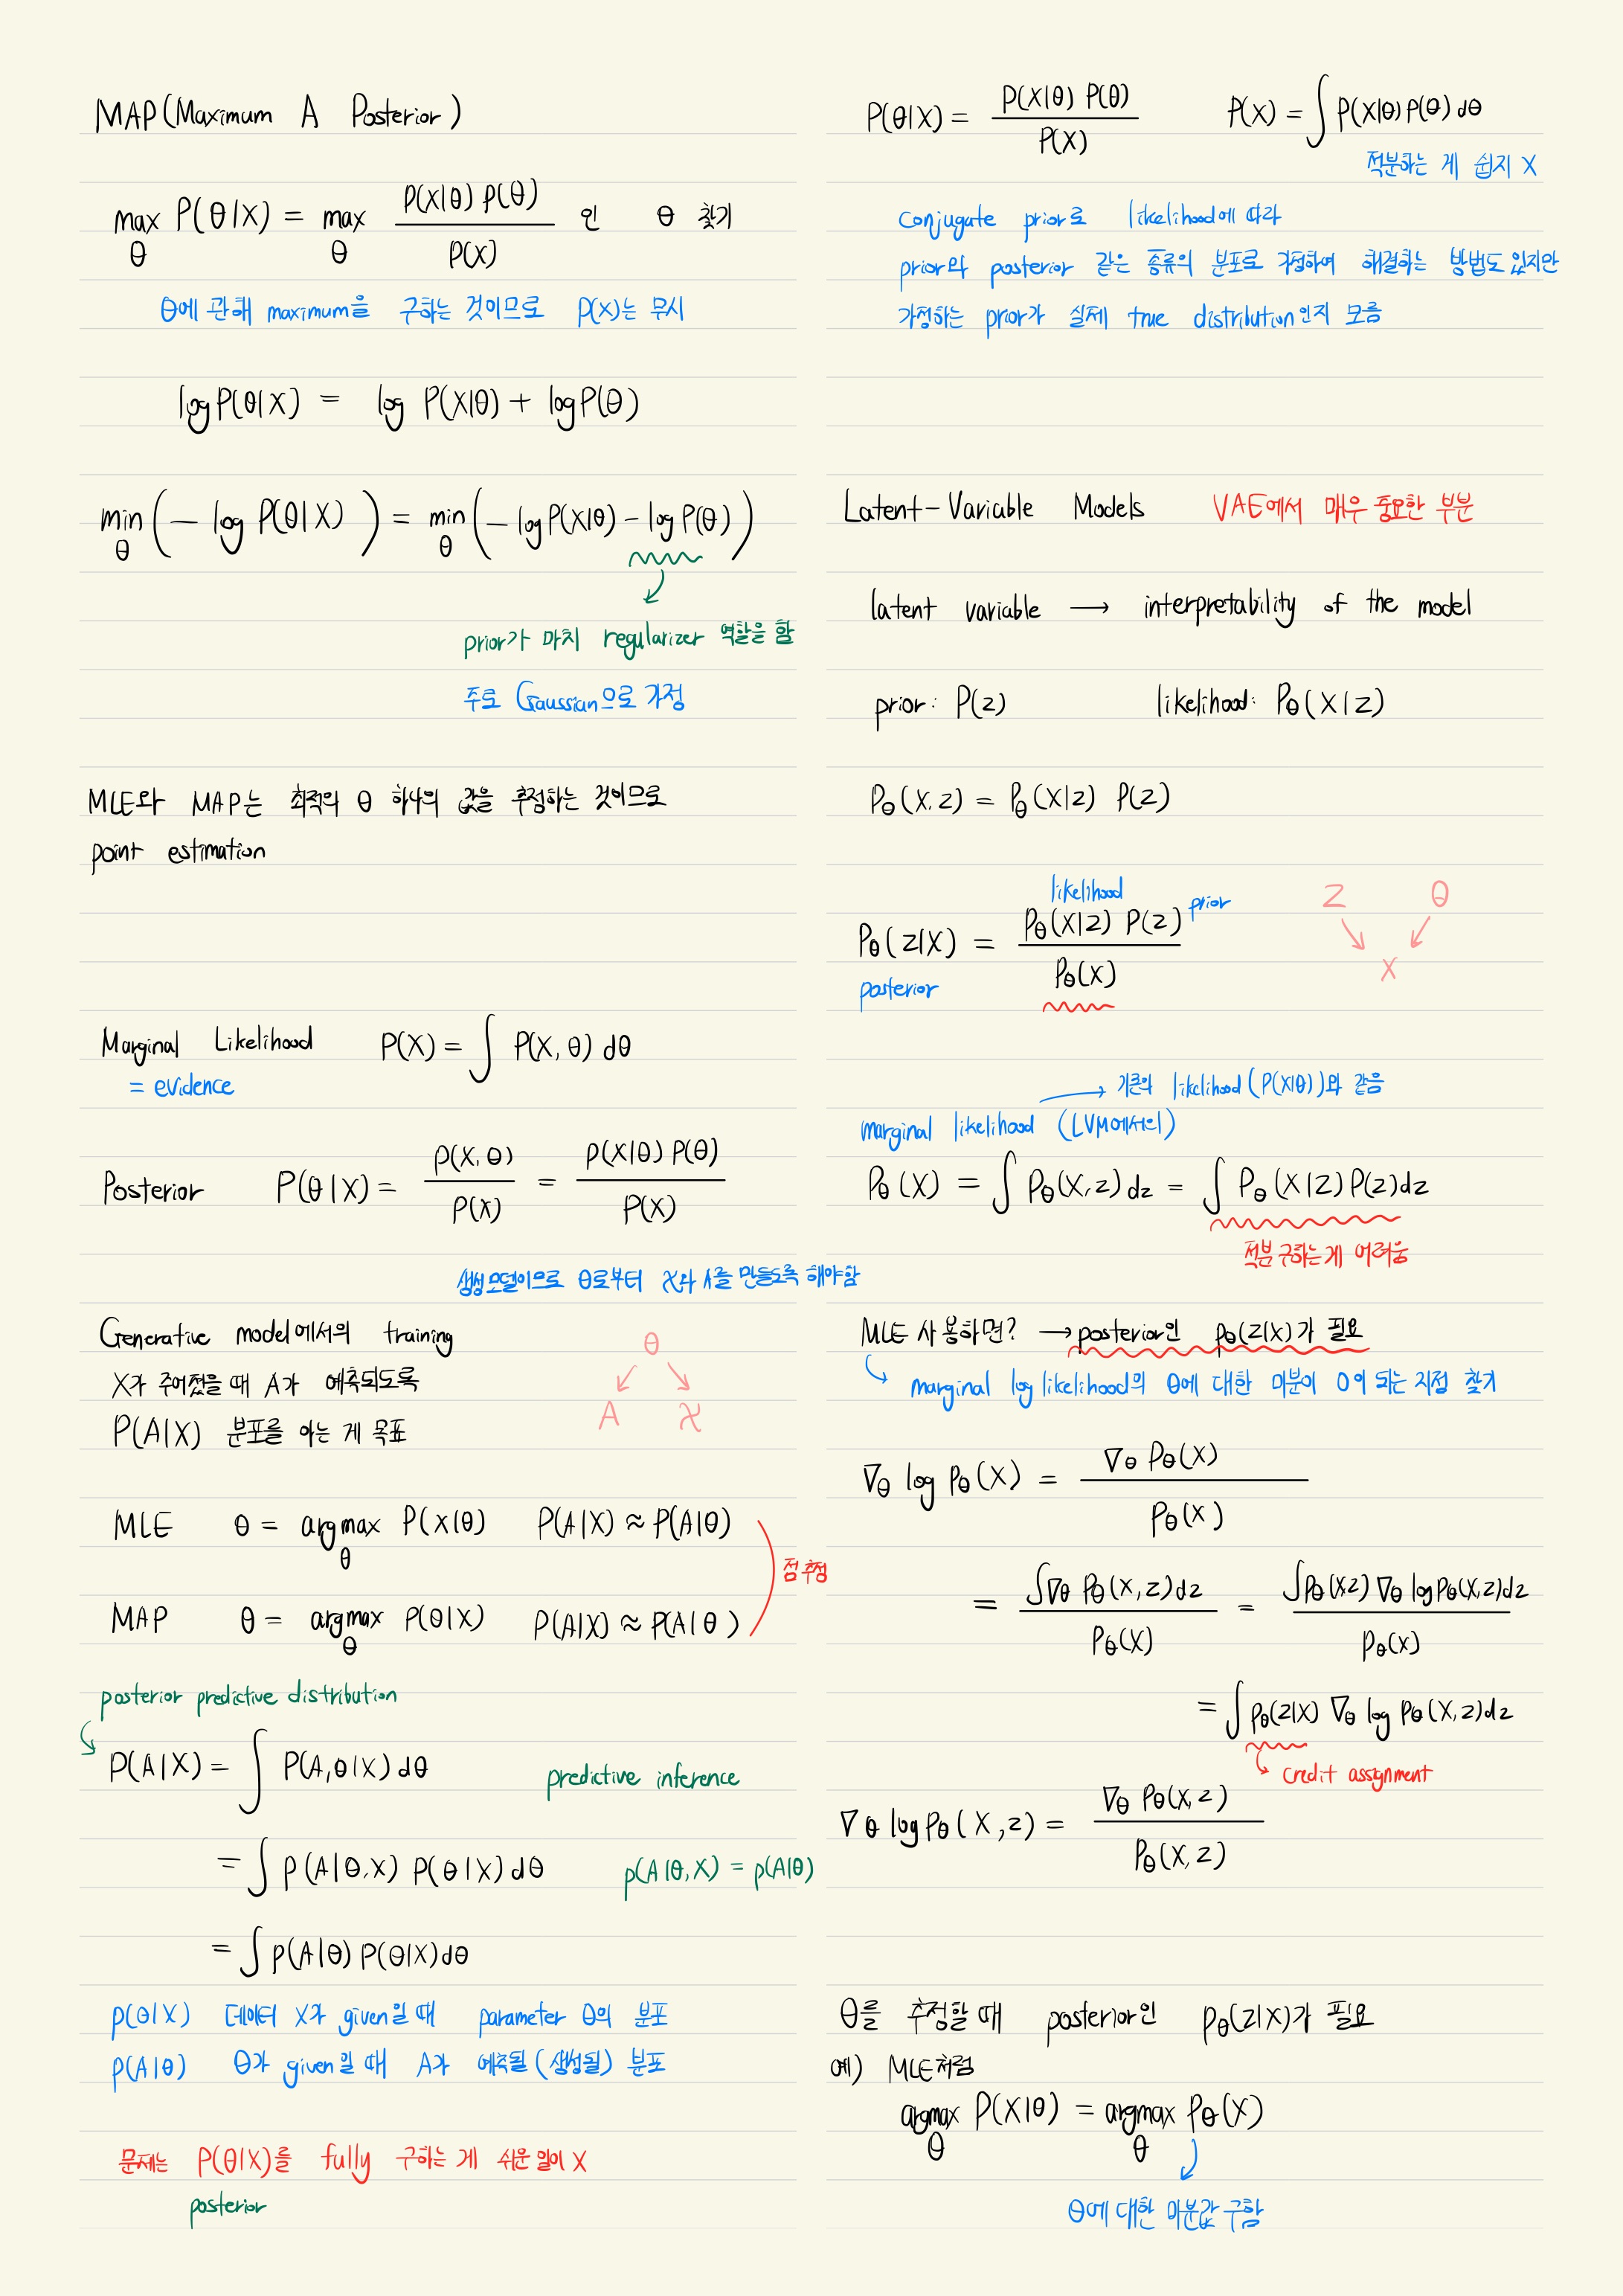 MAP(Maximum A Posterior)
max_θ P(θ|X) = max_θ P(X|θ) P(θ) / P(X) 인 θ 찾기
θ에 관해 maximum을 구하는 것이므로 P(X)는 무시
log P(θ|X) = log P(X|θ) + log P(θ)
min_θ (- log P(θ|X)) = min_θ (- log P(X|θ) - log P(θ))
prior가 마치 regularizer 역할을 함
주로 Gaussian으로 가정
MLE와 MAP는 최적의 θ 하나의 값을 추정하는 것이므로
point estimation
Marginal Likelihood P(X) = ∫ P(X, θ) dθ
= evidence
Posterior P(θ|X) = P(X, θ) / P(X) = P(X|θ) P(θ) / P(X)
생성모델이므로 θ로부터 x와 A를 만들도록 해야함
Generative model에서의 training
X가 주어졌을 때 A가 예측되도록
P(A|X) 분포를 아는 게 목표
θ
A x
MLE θ = argmax_θ P(X|θ) P(A|X) ≈ P(A|θ)
점추정
MAP θ = argmax_θ P(θ|X) P(A|X) ≈ P(A|θ)
posterior predictive distribution
P(A|X) = ∫ P(A, θ|X) dθ predictive inference
= ∫ P(A|θ, X) P(θ|X) dθ p(A|θ, X) = p(A|θ)
= ∫ p(A|θ) P(θ|X) dθ
p(θ|X) 데이터 X가 given일 때 parameter θ의 분포
p(A|θ) θ가 given일 때 A가 예측될(생성될) 분포
문제는 P(θ|X)를 fully 구하는 게 쉬운 일이 X
posterior
P(θ|X) = P(X|θ) P(θ) / P(X) P(X) = ∫ P(X|θ) P(θ) dθ
적분하는 게 쉽지 X
conjugate prior로 likelihood에 따라
prior와 posterior 같은 종류의 분포로 가정하여 해결하는 방법도 있지만
가정하는 prior가 실제 true distribution인지 모름
Latent-Variable Models VAE에서 매우 중요한 부분
latent variable → interpretability of the model
prior: P(z) likelihood: Pθ(X|z)
Pθ(X, z) = Pθ(X|z) P(z)
likelihood
prior
Pθ(z|X) = Pθ(X|z) P(z) / Pθ(X)
posterior
z θ
X
→ 기존의 likelihood(P(X|θ))와 같음
marginal likelihood (LVM에서의)
Pθ(X) = ∫ Pθ(X, z) dz = ∫ Pθ(X|z) P(z) dz
적분 구하는게 어려움
MLE 사용하면? → posterior인 pθ(z|X)가 필요
marginal log likelihood의 θ에 대한 미분이 0이 되는 지점 찾기
∇θ log Pθ(X) = ∇θ Pθ(X) / Pθ(X)
= ∫∇θ Pθ(X, z) dz / Pθ(X) = ∫Pθ(X z) ∇θ log Pθ(X, z) dz / Pθ(X)
= ∫ pθ(z|X) ∇θ log Pθ(X, z) dz
credit assignment
∇θ log Pθ(X, z) = ∇θ Pθ(X, z) / Pθ(X, z)
θ를 추정할 때 posterior인 pθ(z|X)가 필요
예) MLE처럼
argmax_θ P(X|θ) = argmax_θ Pθ(X)
θ에 대한 미분값 구함